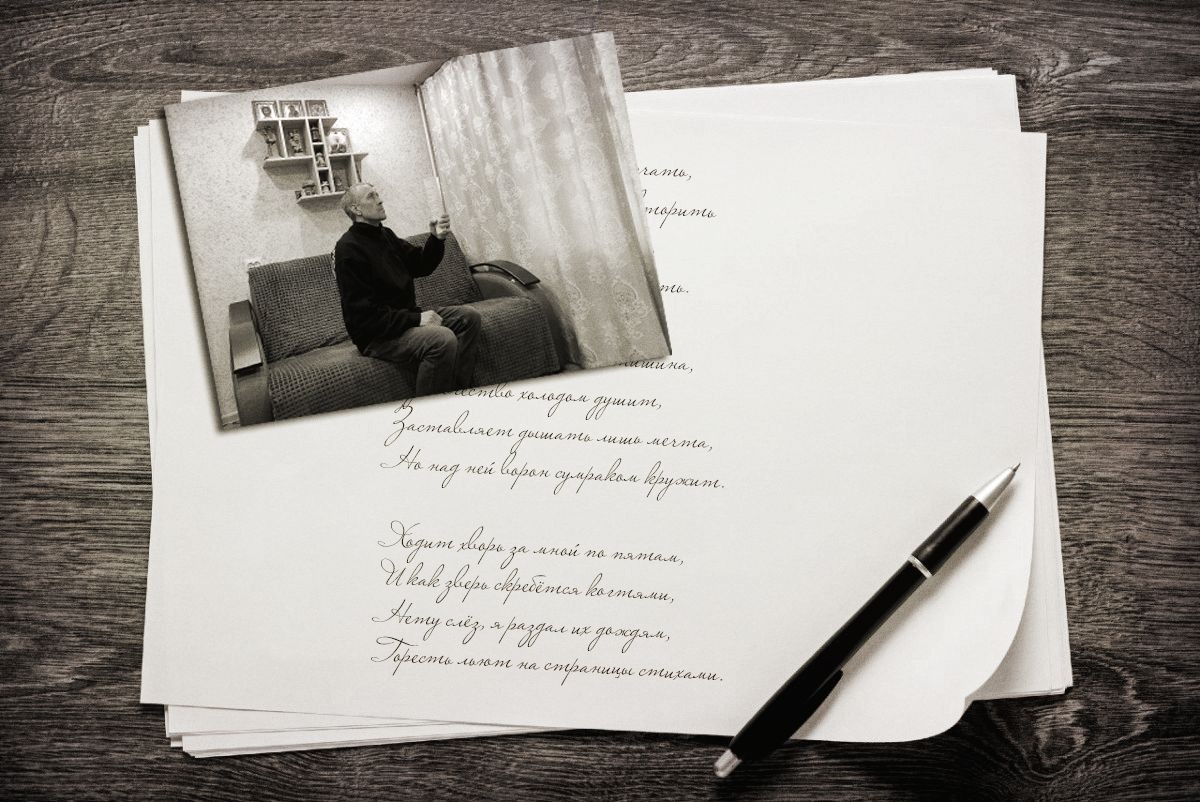 чать,
торить
ть.
тишина,
холодом душит,
Заставляет дышать лишь мечта,
Но над ней ворон сумраком кружит.
Ходит хворь за мной по пятам,
И как зверь скребётся когтями,
Нету слёз, я раздал их дождям,
Горесть льют на страницы стихами.